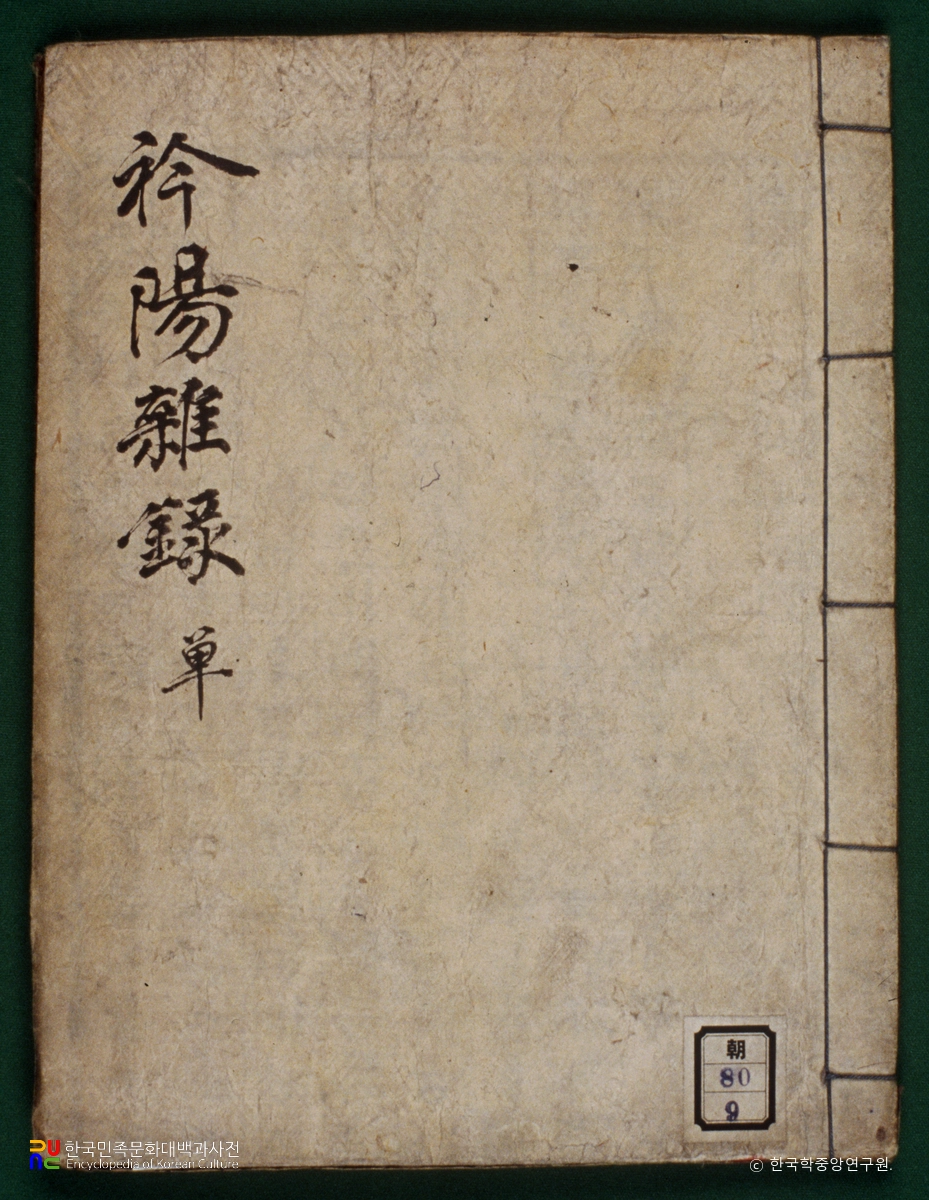 衿陽雜錄 单
朝
80
9
한국민족문화대백과사전
Encyclopedia of Korean Culture
© 한국학중앙연구원.